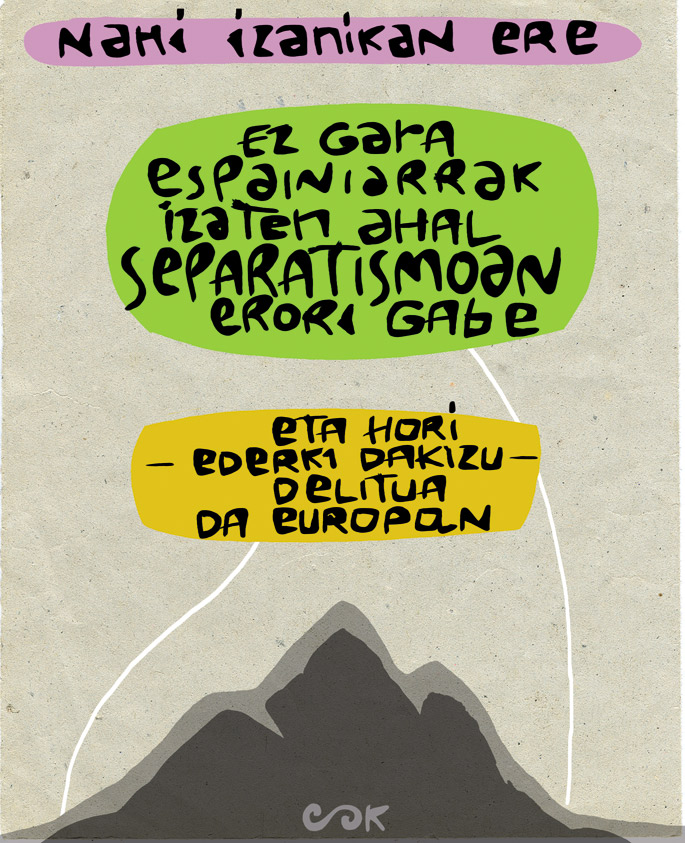 NAHi iZANiKAN ERE
EZ GARA
ESPAiNiARRAK
iZATEN AHAL
SEPARATiSMOAN
ERORi GABE
ETA HORi
– EDERKI DAKIZU –
DELITUA
DA EUROPAN